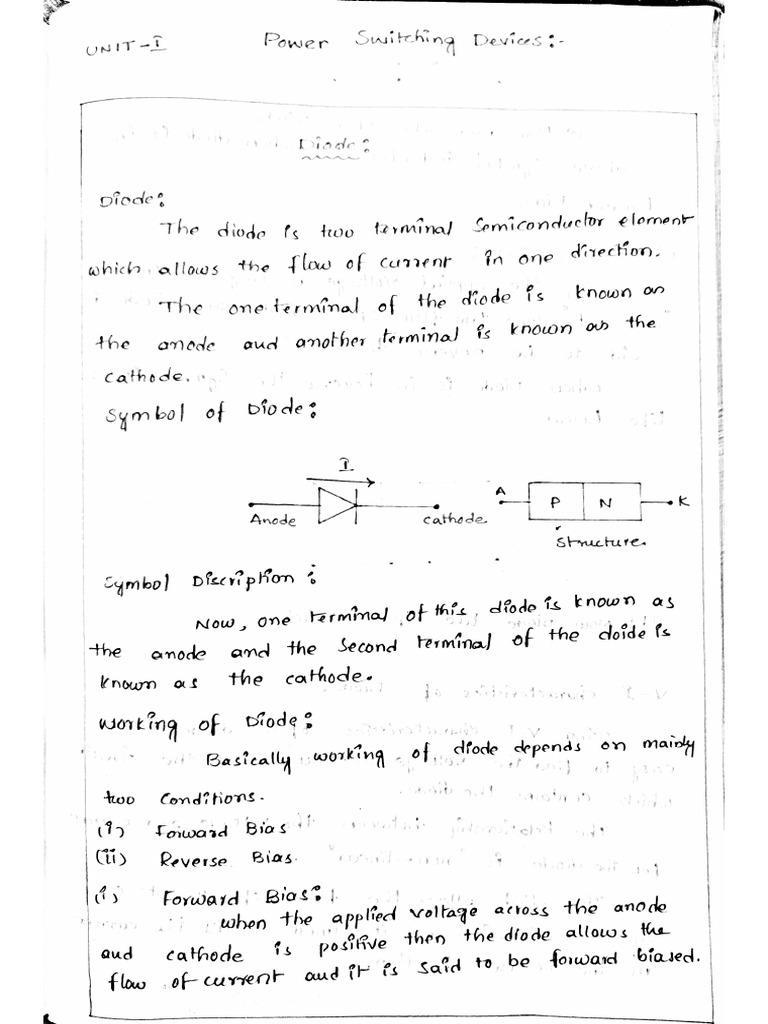 UNIT-I Power Switching Devices:-
Diode:
Diode:
The diode is two terminal semiconductor element
which allows the flow of current in one direction.
The one terminal of the diode is known as
the anode and another terminal is known as the
cathode.
Symbol of Diode:
I
Anode
cathode
A
P
N
K
Structure.
Symbol Discription:
Now, one terminal of this diode is known as
the anode and the second terminal of the doide is
known as the cathode.
Working of Diode:
Basically working of diode depends on mainly
two Conditions.
(i) Forward Bias
(ii) Reverse Bias.
(i) Forward Bias:
when the applied voltage across the anode
and cathode is positive then the diode allows the
flow of current and it is said to be forward biased.